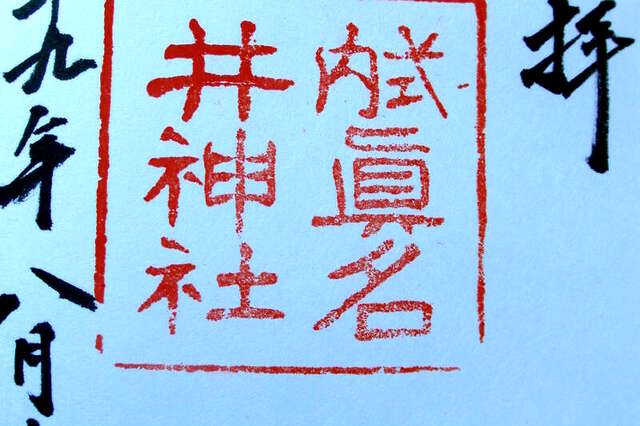 拝
式内眞名
井神社
九年八月